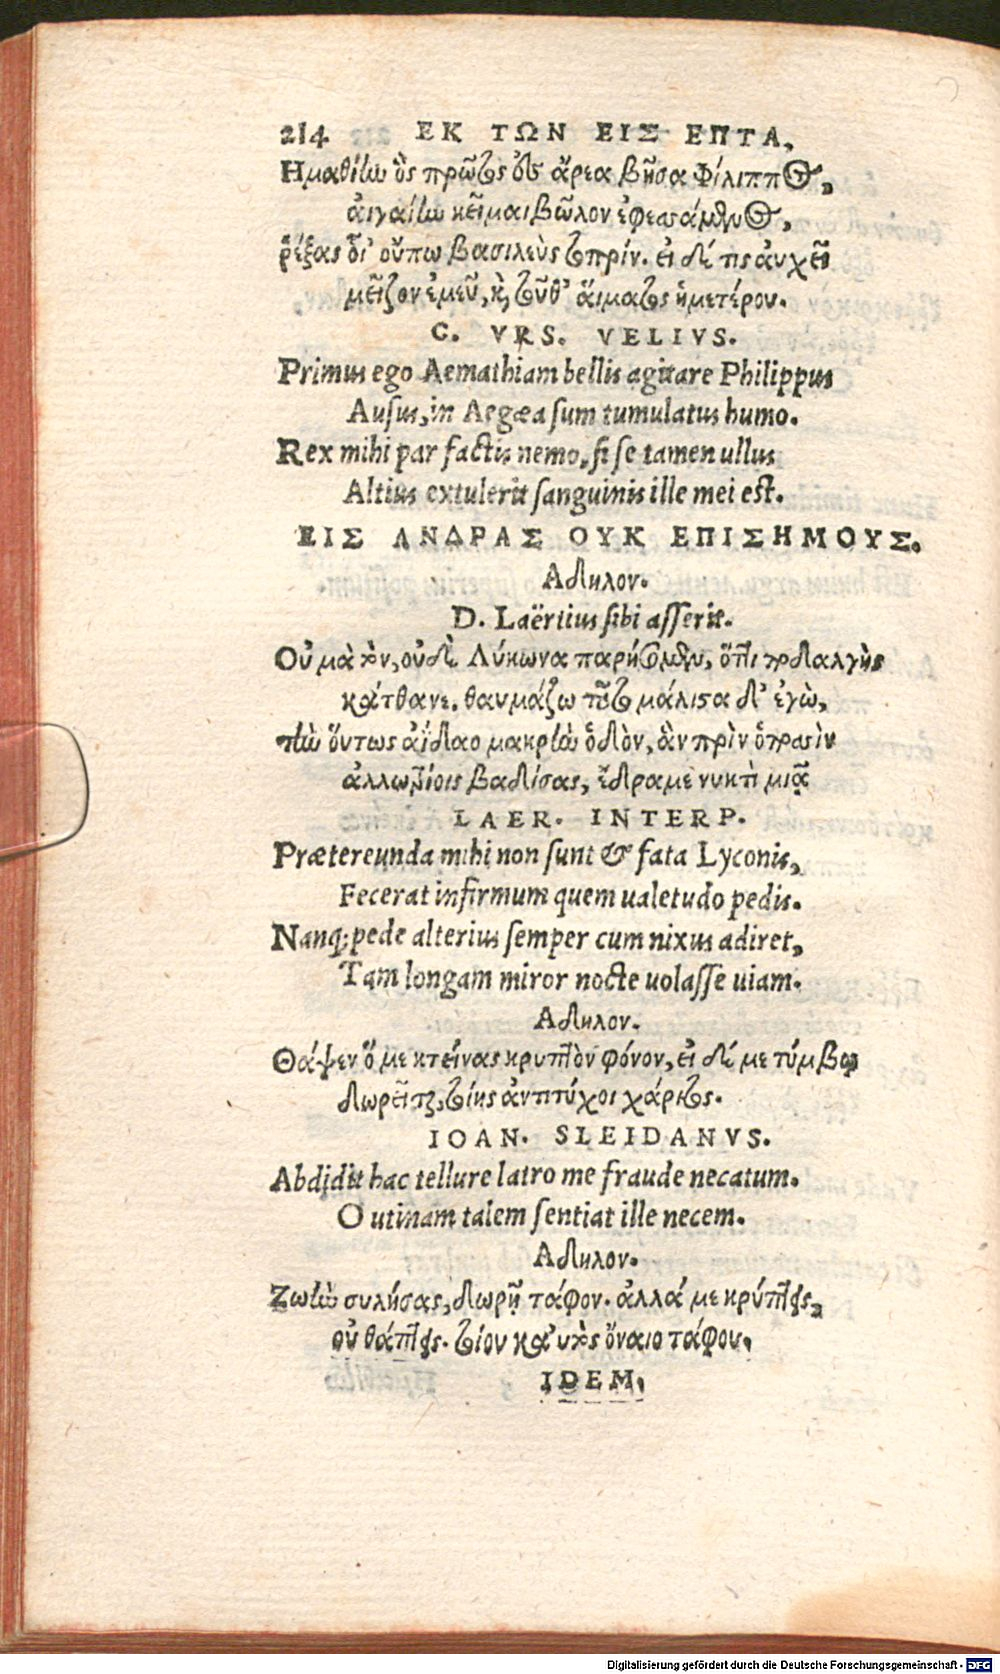 214 ΕΚ ΤΩΝ ΕΙΣ ΕΠΤΑ,
Ημαθίην ὃς πρῶτος εἰς ἄρεα βῆσα Φίλιππος,
αἰγαίην κεῖμαι βῶλον ἐφεσσάμενος,
ῥέξας οἷ' οὔπω βασιλεὺς τοπρίν. εἰ δέ τις αὐχεῖ
μεῖζον ἐμεῦ, καὶ τοῦθ' αἵματος ἡμετέρου.
C. VRS. VELIVS.
Primus ego Aemathiam bellis agitare Philippus
Ausus, in Aegæa sum tumulatus humo.
Rex mihi par factis nemo, si se tamen ullus
Altius extulerit sanguinis ille mei est.
ΕΙΣ ΑΝΔΡΑΣ ΟΥΚ ΕΠΙΣΗΜΟΥΣ.
Αδηλον.
D. Laërtius sibi asserit.
Οὐ μὰ τὸν, οὐδὲ Λύκωνα παρήσομεν, ὅττι ποδαλγὴς
κάτθανε. θαυμάζω τοῦτο μάλιστα δ' ἐγὼ,
τὴν οὕτως ἀΐδαο μακρὴν ὁδὸν, ἂν πρὶν ὁ ποσὶν
ἀλλοτρίοις βαδίσας, ἔδραμε νυκτὶ μιᾷ
LAER. INTERP.
Prætereunda mihi non sunt & fata Lyconis,
Fecerat infirmum quem ualetudo pedis.
Nanq; pede alterius semper cum nixus adiret,
Tam longam miror nocte uolasse uiam.
Αδηλον.
Θάψεν ὅ με κτείνας κρυπτὸν φόνον, εἰ δέ με τύμβῳ
δωρεῖται, τοίης ἀντιτύχοι χάριτος.
IOAN. SLEIDANVS.
Abdidit hac tellure latro me fraude necatum.
O utinam talem sentiat ille necem.
Αδηλον.
Ζωὴν συλήσας, δωρῇ τάφον. ἀλλά με κρύπτεις,
οὐ θάπτεις. τοίου καὐτὸς ὄναιο τάφου.
IDEM.
Digitalisierung gefördert durch die Deutsche Forschungsgemeinschaft - DFG